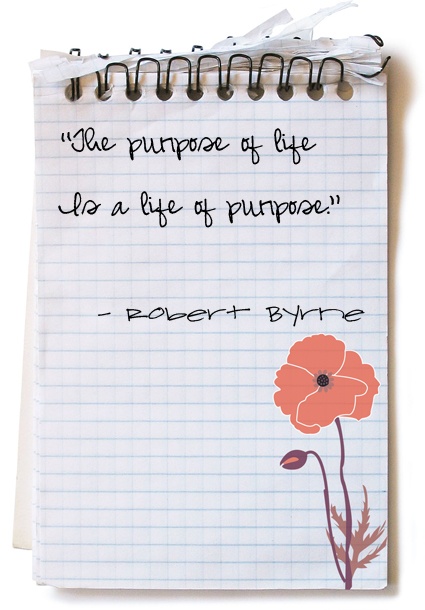 “The purpose of life
Is a life of purpose.”
- Robert Byrne